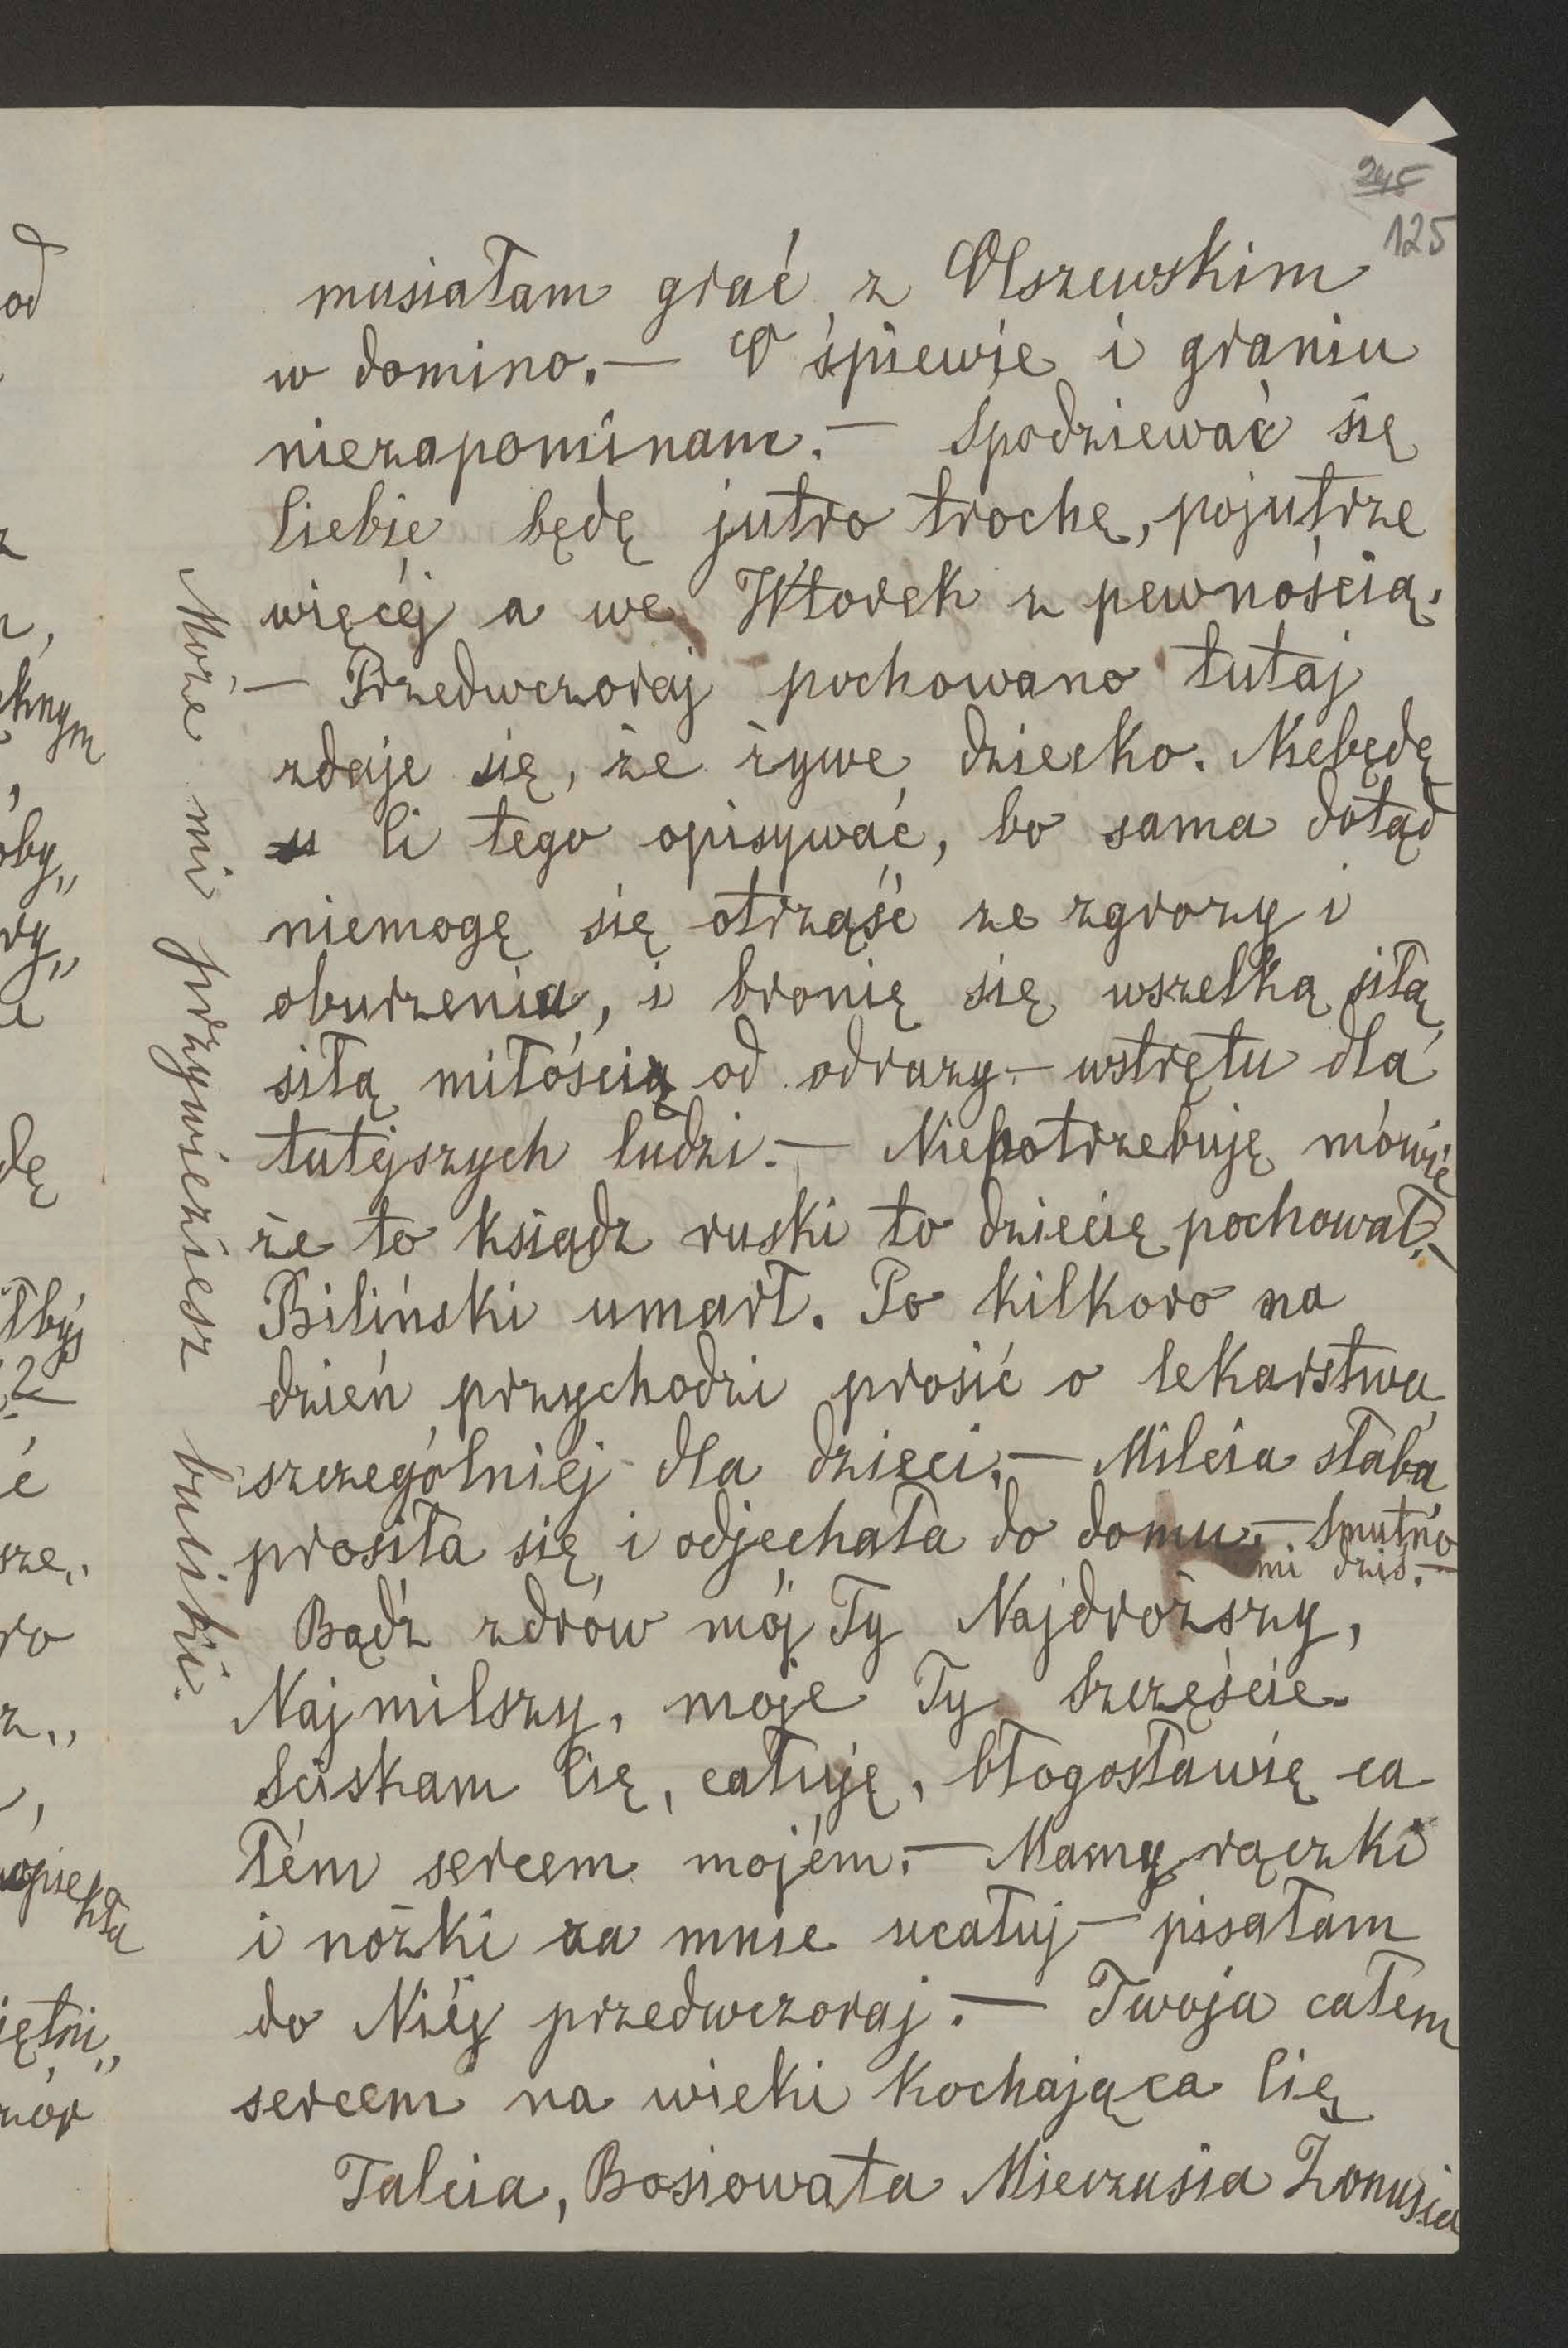 245
125
musiałam grać z Olszewskim
w domino. — O śpiewie i graniu
niezapominam. — Spodziewać się
Ciebie będę jutro trochę, pojutrze
więcéj a we Wtorek z pewnością.
— Przedwczoraj pochowano tutaj
zdaje się, że żywe dziecko. Niebędę
Ci tego opisywać, bo sama dotąd
niemogę się otrząść ze zgrozy i
oburzenia, i bronię się wszelką siłą,
siłą miłością od odrazy — wstrętu dla
tutejszych ludzi. — Niepotrzebuję mówić
że to ksiądz ruski to dziecię pochował. —
Biliński umarł. Po kilkoro na
dzień przychodzi prosić o lekarstwa,
szczególniéj dla dzieci. — Milcia słaba,
prosiła się i odjechała do domu. — Smutno
mi dziś. —
Bądź zdrów mój Ty Najdroższy,
Najmilszy, moje Ty Szczęście.
Sciskam Cię, całuję, błogosławię ca
łém sercem mojém. — Mamy rączki
i nóżki za mnie ucałuj — pisałam
do Niéj przedwczoraj. — Twoja całem
sercem na wieki kochająca Cię
Talcia, Bosiowata Mieczusia Żonusia
Może mi przywieziesz buciki.
od
z
n,
oby„
ry„
dę
2
ć
sze„
ro
z„
iętni„